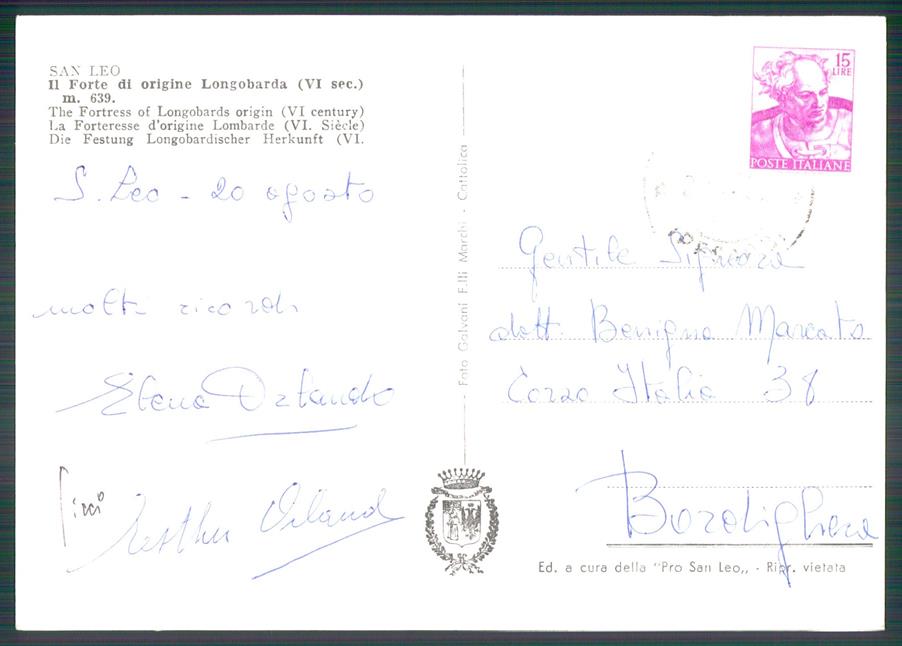 SAN LEO
Il Forte di origine Longobarda (VI sec.)
m. 639.
The Fortress of Longobards origin (VI century)
La Forteresse d'origine Lombarde (VI. Siècle)
Die Festung Longobardischer Herkunft (VI.
S. Leo - 20 agosto
molti ricordi
Elena Orlando
Esther Orlando
Foto Galvani F.lli Marchi - Cattolica
15
LIRE
POSTE ITALIANE
Gentile Signora
dott. Benigna Marcato
Corso Italia 38
Bordighera
Ed. a cura della "Pro San Leo„ - Ripr. vietata